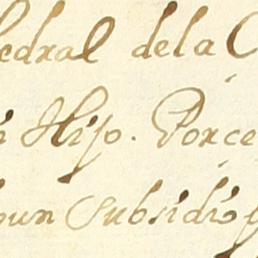 edral dela C
Hijo. Porce
un Subsidio